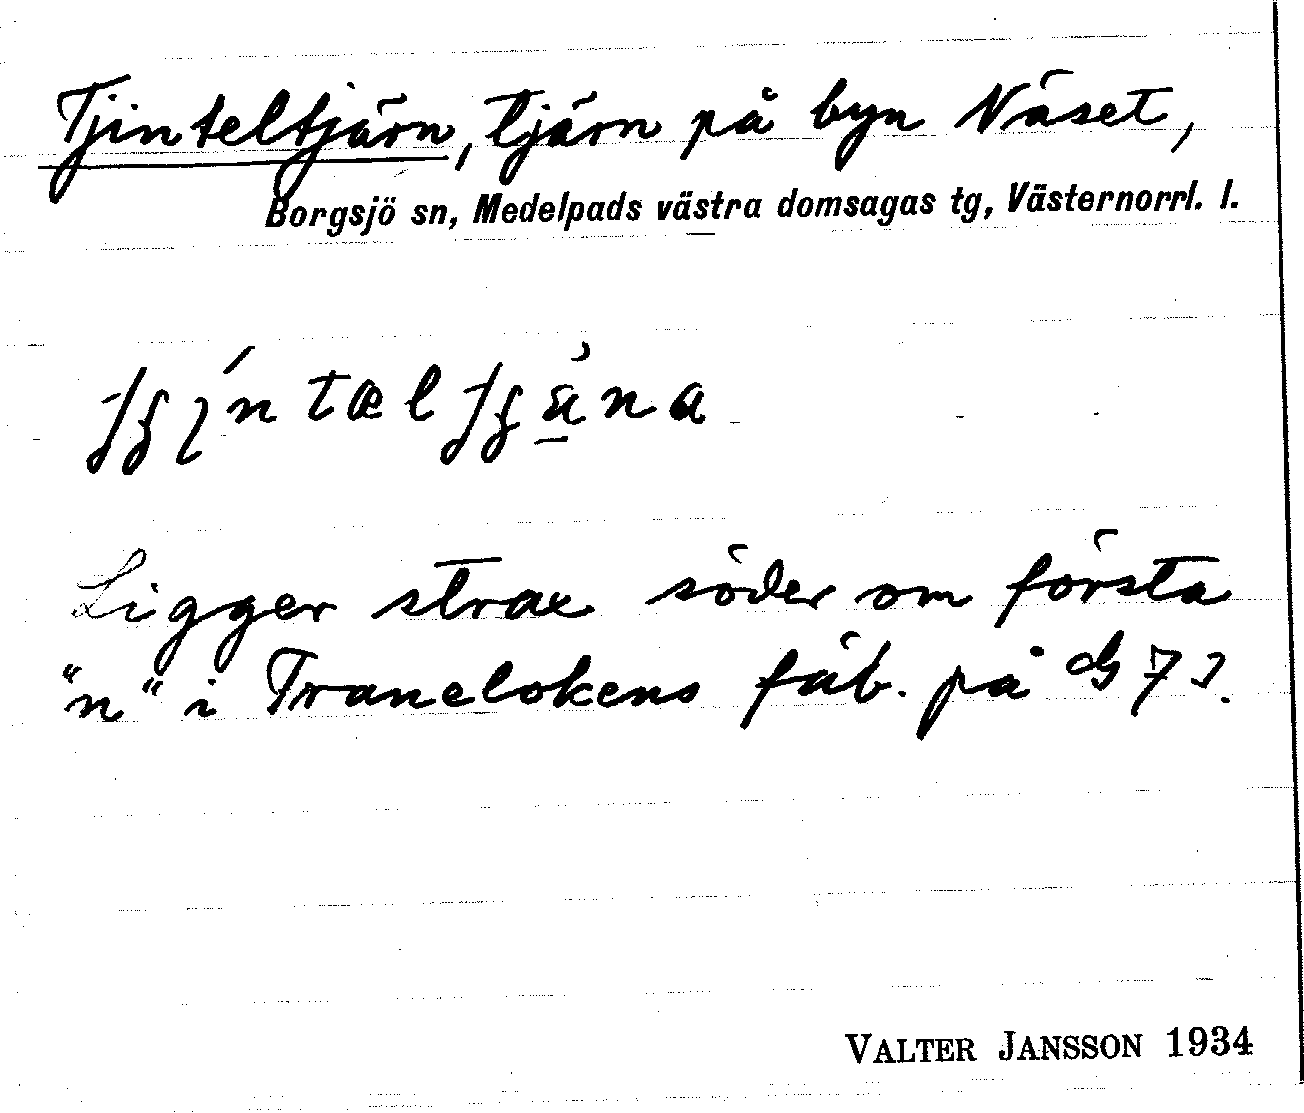 Tjinteltjärn, tjärn på byn Näset,
Borgsjö sn, Medelpads västra domsagas tg, Västernorrl. l.
Ligger strax söder om första
"n" i Tranelokens fäb. på G 73.
VALTER JANSSON 1934